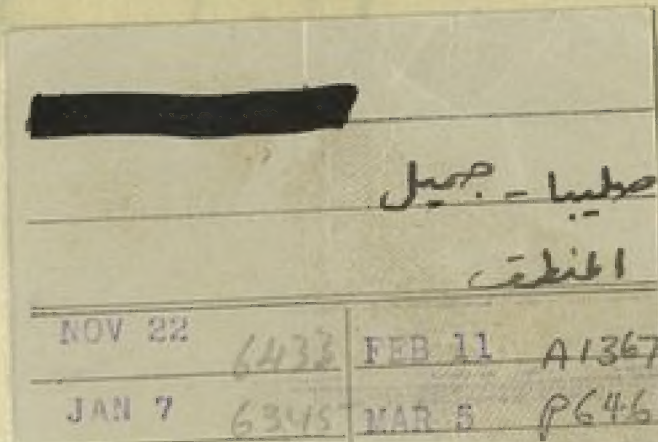 صليبا - جميل
المنطق
NOV 22 6433 FEB 11 A1367
JAN 7 6345 MAR 5 P646